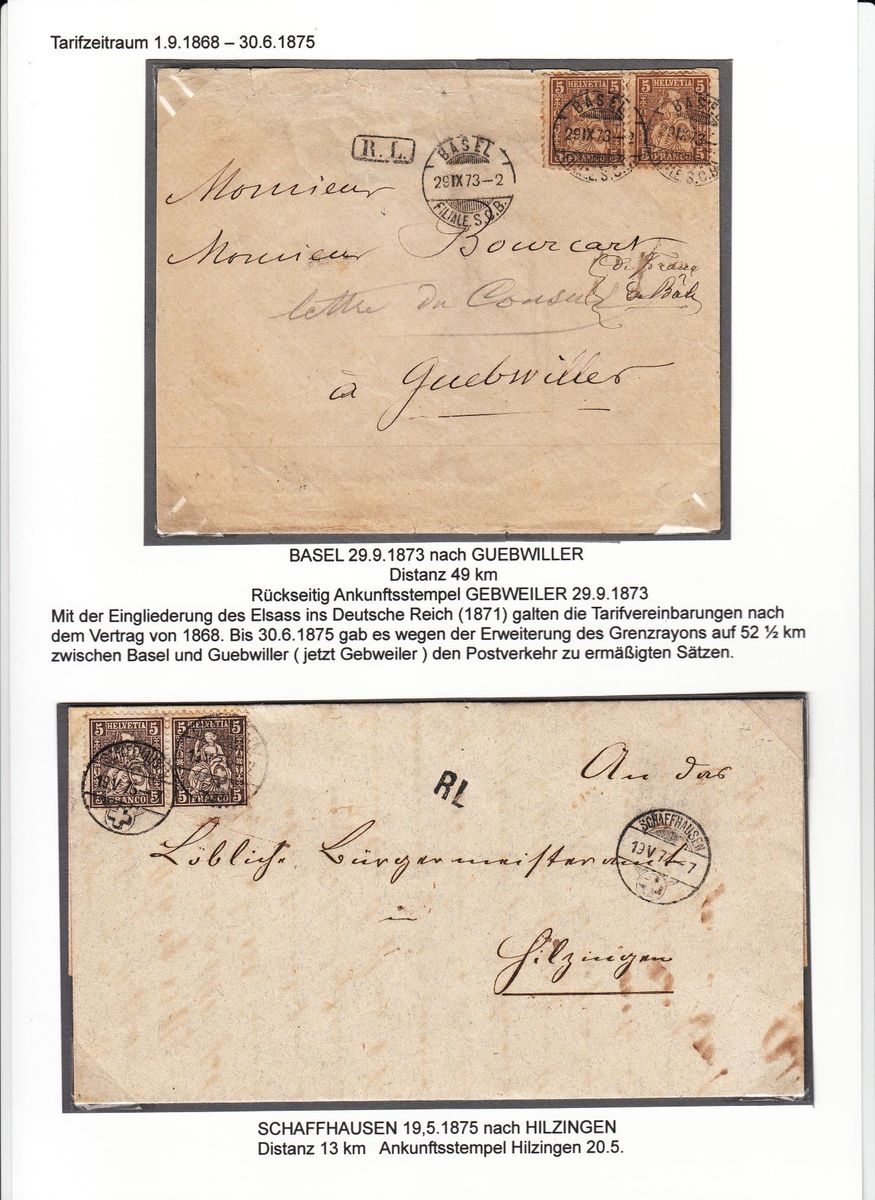 Tarifzeitraum 1.9.1868 – 30.6.1875
5 HELVETIA 5
5 HELVETIA 5
BASEL
29 IX 73–2
FILIALE S.C.B.
FRANCO
BASEL
29 IX 73
FRANCO
R. L.
BASEL
29 IX 73–2
FILIALE. S.C.B.
Monsieur
Monsieur Bourcart
lettre du Consul
de Bâle
à Guebwiller
BASEL 29.9.1873 nach GUEBWILLER
Distanz 49 km
Rückseitig Ankunftsstempel GEBWEILER 29.9.1873
Mit der Eingliederung des Elsass ins Deutsche Reich (1871) galten die Tarifvereinbarungen nach
dem Vertrag von 1868. Bis 30.6.1875 gab es wegen der Erweiterung des Grenzrayons auf 52 ½ km
zwischen Basel und Guebwiller ( jetzt Gebweiler ) den Postverkehr zu ermäßigten Sätzen.
5 HELVETIA 5
5 HELVETIA 5
SCHAFFHAUSEN
19 V 75
5 FRANCO 5
5 FRANCO 5
RL
An das
SCHAFFHAUSEN
19 V 7 –7
Löbliche Bürgermeisteramt
in
Hilzingen
SCHAFFHAUSEN 19,5.1875 nach HILZINGEN
Distanz 13 km Ankunftsstempel Hilzingen 20.5.